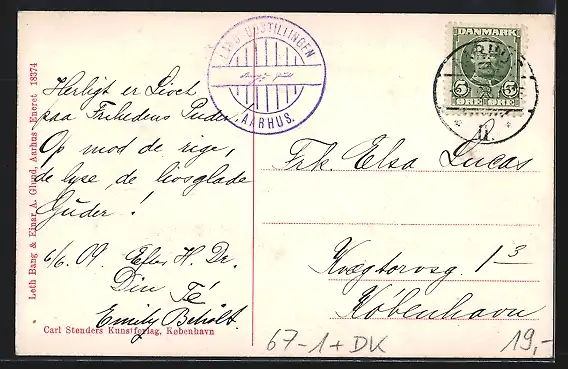 LANDSUDSTILLINGEN
AARHUS.
DANMARK
5 5
ØRE ØRE
Leth Bang & Einar A. Glund, Aarhus Eneret 18374
Herligt er Livet
paa Frihedens Puder,
Op mod de rige,
de lyse, de livsglade
Guder!
6/6. 09. Efter H. Dr.
Din Té
Emily
Carl Stenders Kunstforlag, København
Frk. Elsa Lucas
Kvægtorvsg. 1 3
København
67-1+DK
19,-